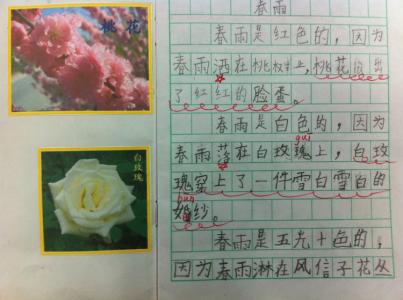 桃花
白玫瑰
春雨
春雨是红色的，因为
春雨洒在桃树上，桃花出
了红红的脸蛋。
春雨是白色的，因为
gui
春雨落在白玫瑰上，白玫
瑰穿上了一件雪白雪白的
hun
婚纱。
春雨是五光十色的，
因为春雨淋在风信子花丛